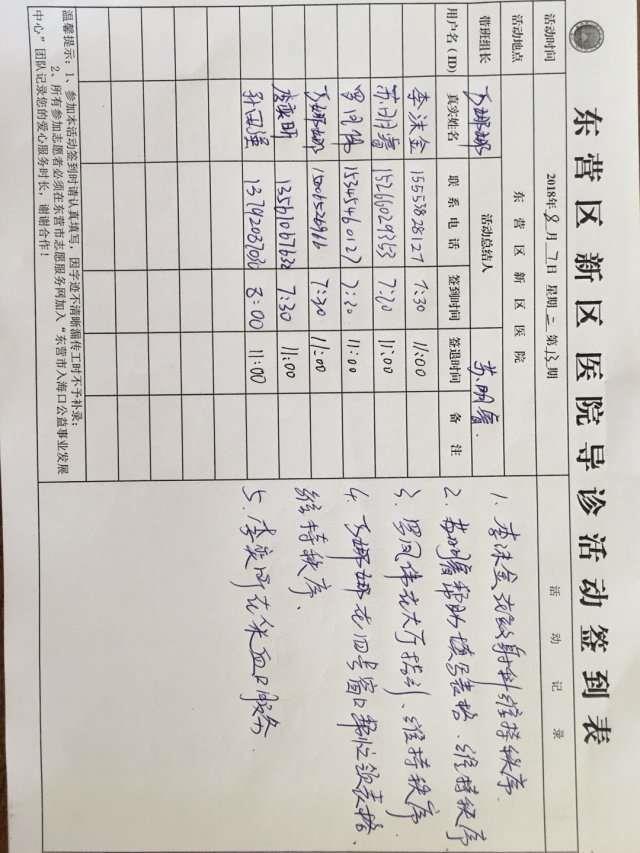 东营区新区医院导诊活动签到表
活动时间 2018年8月7日 星期二 第13期
活动地点 东营区新区医院
活动记录
带班组长 活动总结人 苏明睿.
用户名(ID) 真实姓名 联系电话 签到时间 签退时间 备注
李沫金 15553828127 7:30 11:00
苏明睿 15266029353 7:20 11:00
罗凤伟 15345460127 7:20 11:00
娜娜 15006526916 7:30 11:00
李爽昕 13561067632 7:30 11:00
13792037030 8:00 11:00
1. 李沫金在放射科维持秩序.
2. 苏明睿帮助填写表格、维持秩序
3、罗凤伟在大厅指引、维持秩序.
4. 娜娜在四号窗口帮忙领表格.
维持秩序.
5. 李爽昕在采血口服务.
温馨提示:1、参加本活动签到时请认真填写,因字迹不清晰漏传工时不予补录;
2、所有参加志愿者必须在东营市志愿服务网加入“东营市入海口公益事业发展
中心”团队记录您的爱心服务时长,谢谢合作!